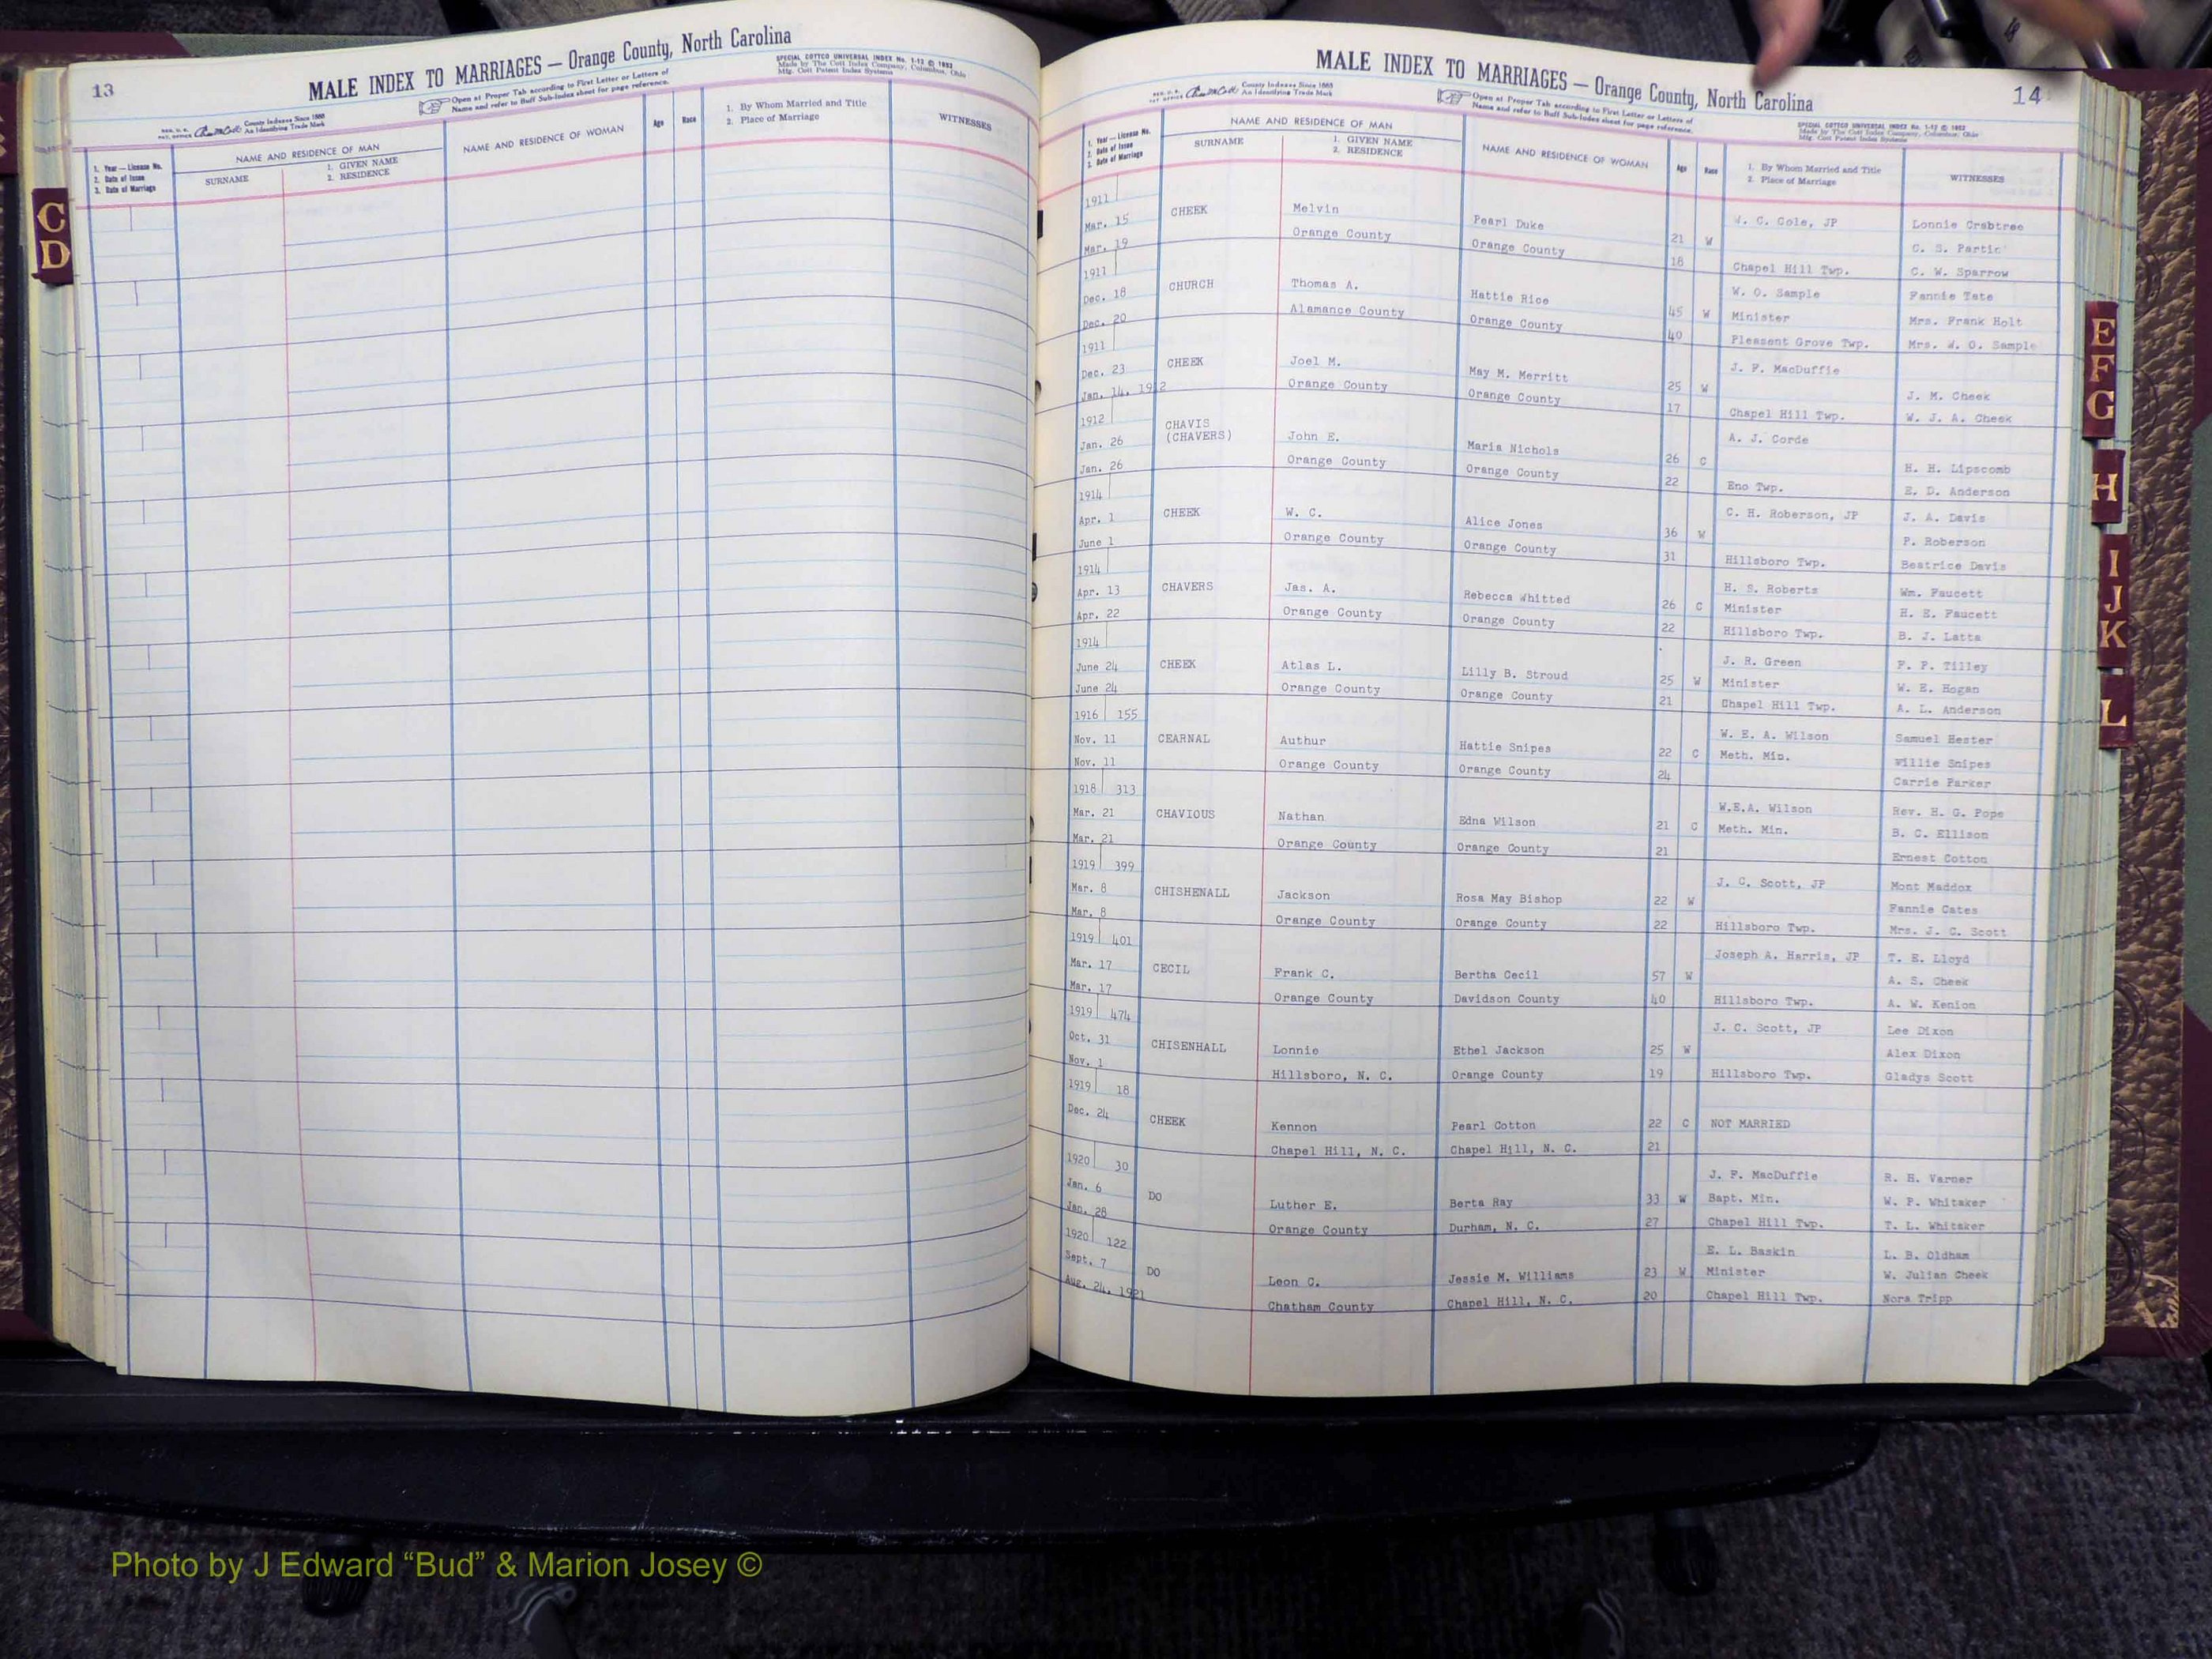 13
MALE INDEX TO MARRIAGES — Orange County, North Carolina
Open at Proper Tab according to First Letter or Letters of
Name and refer to Buff Sub-Index sheet for page reference.
SPECIAL COTTCO UNIVERSAL INDEX No. 1-12 © 1952
Made by The Cott Index Company, Columbus, Ohio
Mfg. Cott Patent Index Systems
County Indexes Since 1888
An Identifying Trade Mark
1. Year — License No.
2. Date of Issue
3. Date of Marriage
NAME AND RESIDENCE OF MAN
SURNAME
1. GIVEN NAME
2. RESIDENCE
NAME AND RESIDENCE OF WOMAN
Age
Race
1. By Whom Married and Title
2. Place of Marriage
WITNESSES
C
D
MALE INDEX TO MARRIAGES — Orange County, North Carolina
14
County Indexes Since 1888
An Identifying Trade Mark
Open at Proper Tab according to First Letter or Letters of
Name and refer to Buff Sub-Index sheet for page reference.
SPECIAL COTTCO UNIVERSAL INDEX No. 1-12 © 1952
Made by The Cott Index Company, Columbus, Ohio
Mfg. Cott Patent Index Systems
1. Year — License No.
2. Date of Issue
3. Date of Marriage
NAME AND RESIDENCE OF MAN
SURNAME
1. GIVEN NAME
2. RESIDENCE
NAME AND RESIDENCE OF WOMAN
Age
Race
1. By Whom Married and Title
2. Place of Marriage
WITNESSES
1911
Mar. 15 CHEEK Melvin Pearl Duke 21 W W. C. Cole, JP Lonnie Crabtree
C. S. Partic
Mar. 19 Orange County Orange County 18 Chapel Hill Twp. C. W. Sparrow
1911 W. O. Sample Fannie Tate
Dec. 18 CHURCH Thomas A. Hattie Rice 45 W Minister Mrs. Frank Holt
Dec. 20 Alamance County Orange County 40 Pleasant Grove Twp. Mrs. W. O. Sample
1911 J. F. MacDuffie
Dec. 23 CHEEK Joel M. May M. Merritt 25 W J. M. Cheek
Jan. 14, 1912 Orange County Orange County 17 Chapel Hill Twp. W. J. A. Cheek
1912 CHAVIS A. J. Corde
Jan. 26 (CHAVERS) John E. Maria Nichols 26 C H. H. Lipscomb
Jan. 26 Orange County Orange County 22 Eno Twp. E. D. Anderson
1914 C. H. Roberson, JP J. A. Davis
Apr. 1 CHEEK W. C. Alice Jones 36 W P. Roberson
June 1 Orange County Orange County 31 Hillsboro Twp. Beatrice Davis
1914 H. S. Roberts Wm. Faucett
Apr. 13 CHAVERS Jas. A. Rebecca Whitted 26 C Minister H. E. Faucett
Apr. 22 Orange County Orange County 22 Hillsboro Twp. B. J. Latta
1914 J. R. Green F. P. Tilley
June 24 CHEEK Atlas L. Lilly B. Stroud 25 W Minister W. E. Hogan
June 24 Orange County Orange County 21 Chapel Hill Twp. A. L. Anderson
1916 155 W. E. A. Wilson Samuel Hester
Nov. 11 CEARNAL Authur Hattie Snipes 22 C Meth. Min. Willie Snipes
Nov. 11 Orange County Orange County 24 Carrie Parker
1918 313 W.E.A. Wilson Rev. H. G. Pope
Mar. 21 CHAVIOUS Nathan Edna Wilson 21 C Meth. Min. B. C. Ellison
Mar. 21 Orange County Orange County 21 Ernest Cotton
1919 399 J. C. Scott, JP Mont Maddox
Mar. 8 CHISHENALL Jackson Rosa May Bishop 22 W Fannie Cates
Mar. 8 Orange County Orange County 22 Hillsboro Twp. Mrs. J. C. Scott
1919 401 Joseph A. Harris, JP T. E. Lloyd
Mar. 17 CECIL Frank C. Bertha Cecil 57 W A. S. Cheek
Mar. 17 Orange County Davidson County 40 Hillsboro Twp. A. W. Kenion
1919 474 J. C. Scott, JP Lee Dixon
Oct. 31 CHISENHALL Lonnie Ethel Jackson 25 W Alex Dixon
Nov. 1 Hillsboro, N. C. Orange County 19 Hillsboro Twp. Gladys Scott
1919 18
Dec. 24 CHEEK Kennon Pearl Cotton 22 C NOT MARRIED
Chapel Hill, N. C. Chapel Hill, N. C. 21
1920 30 J. F. MacDuffie R. H. Varner
Jan. 6 DO Luther E. Berta Ray 33 W Bapt. Min. W. P. Whitaker
Jan. 28 Orange County Durham, N. C. 27 Chapel Hill Twp. T. L. Whitaker
1920 122 E. L. Baskin L. B. Oldham
Sept. 7 DO Leon C. Jessie M. Williams 23 W Minister W. Julian Cheek
Aug. 24, 1921 Chatham County Chapel Hill, N. C. 20 Chapel Hill Twp. Nora Tripp
E
F
G
H
I
J
K
L
Photo by J Edward “Bud” & Marion Josey ©